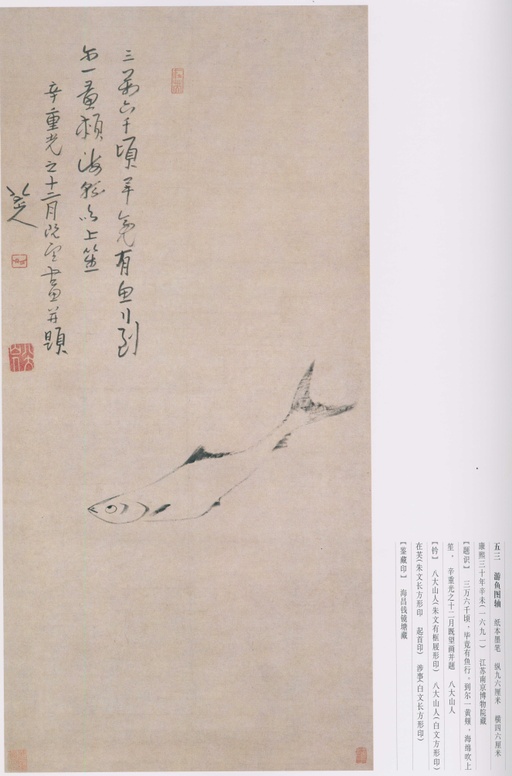 三万六千頃畢竟有魚行到
尔一黄頰海綿吹上笙
辛重光之十二月既望畫并題
八大山人
五三　游鱼图轴　纸本墨笔　纵九六厘米　横四六厘米
康熙三十年辛未(一六九一)　江苏南京博物院藏
[题识]　三万六千顷，毕竟有鱼行。到尔一黄颊，海绵吹上
笙。辛重光之十二月既望画并题　八大山人
[钤]　八大山人(朱文有框屐形印)　八大山人(白文方形印)
在芙(朱文长方形印　起首印)　涉事(白文长方形印)
[鉴藏印]　海昌钱镜塘藏